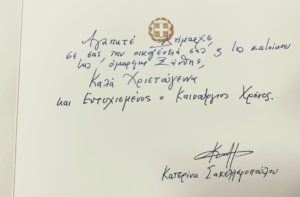 Αγαπητέ Δήμαρχε
σε σας την οικογένειά σας & τους κατοίκους
της όμορφης Ξάνθης,
Καλά Χριστούγεννα
και Ευτυχισμένος ο Καινούργιος Χρόνος.
Κατερίνα Σακελλαροπούλου